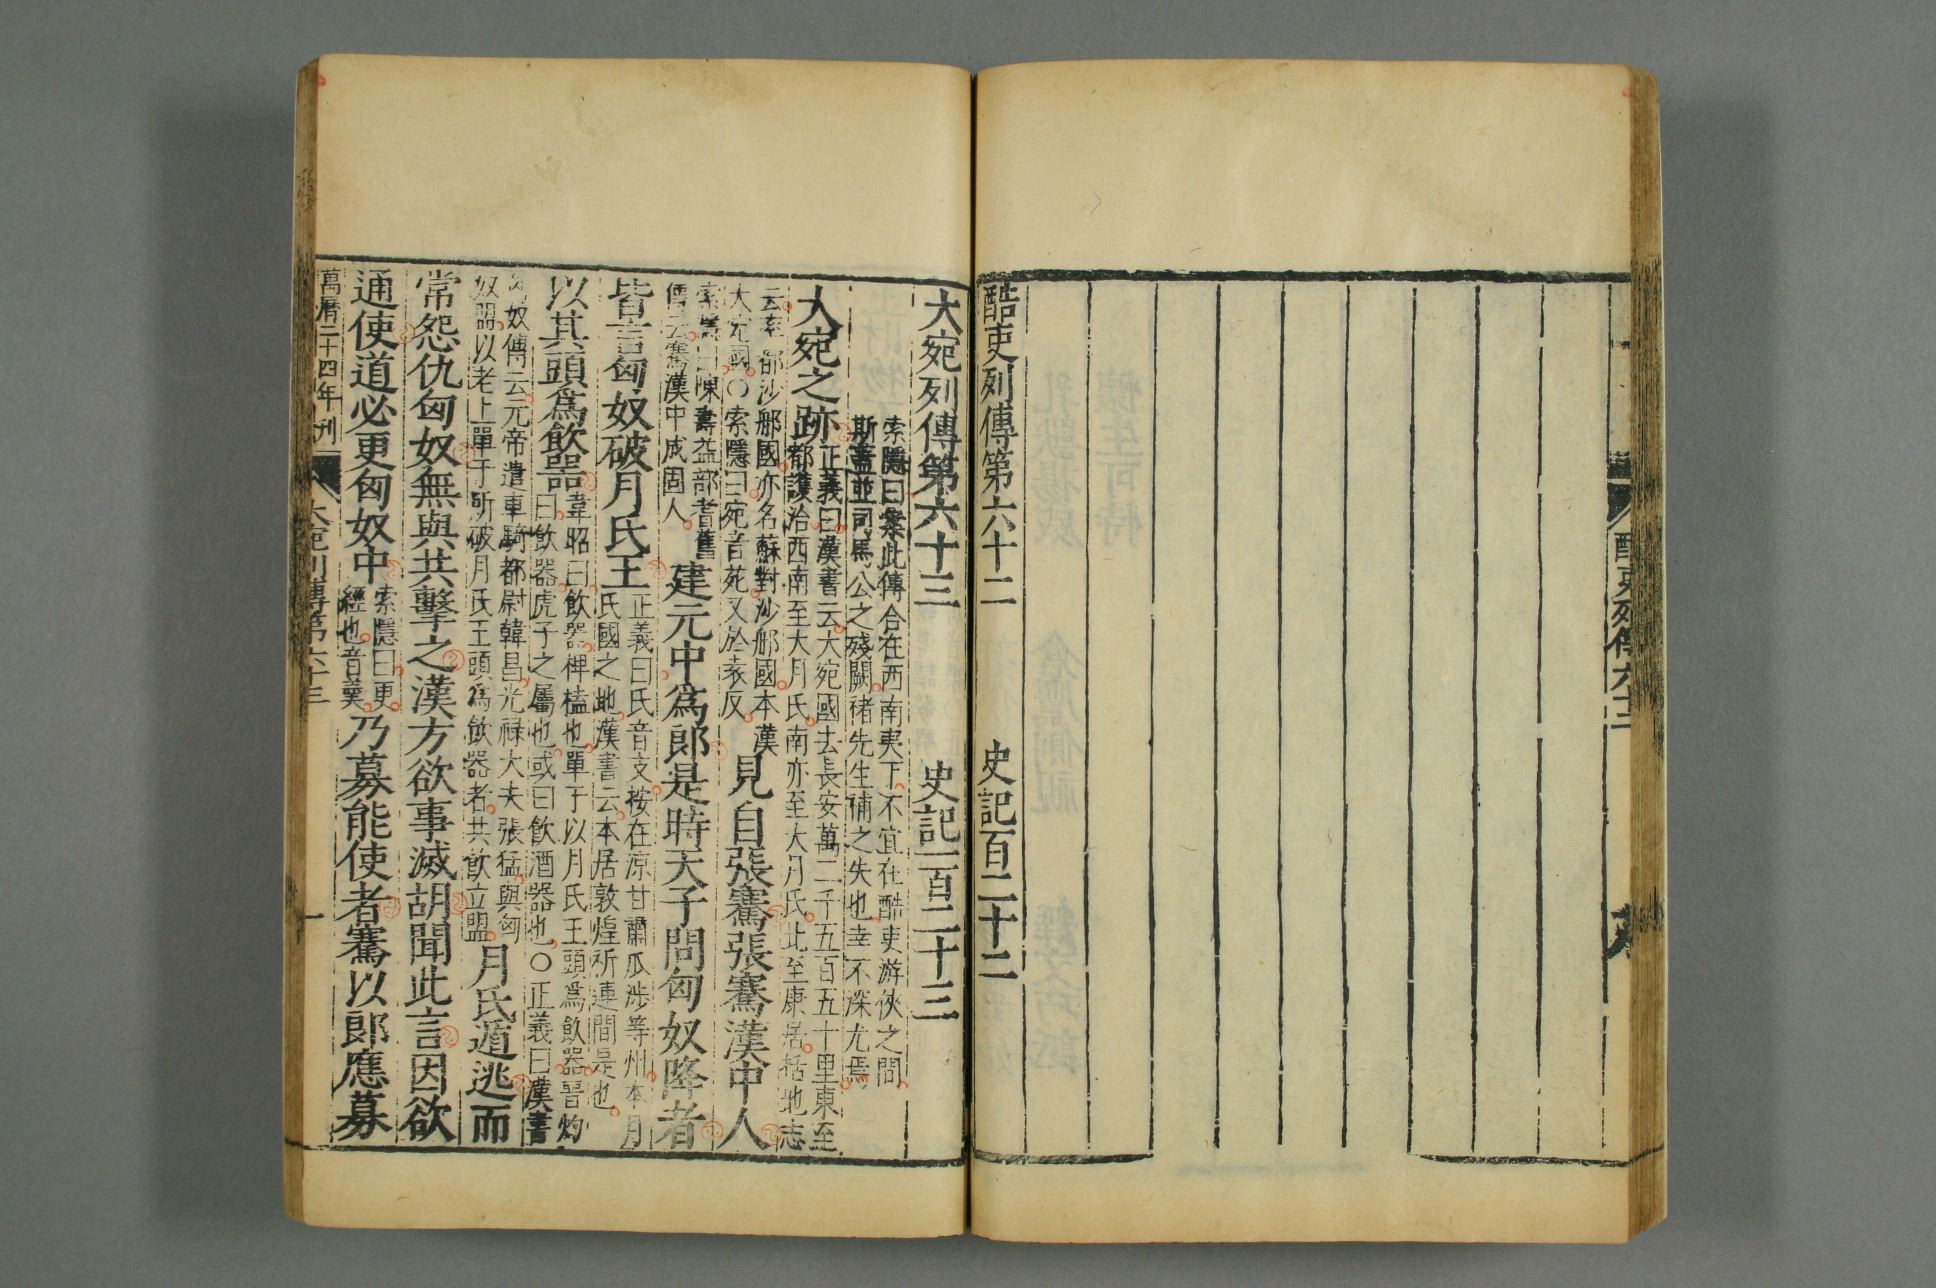 酷吏列傳六十二
酷吏列傳第六十二　史記百二十二
大宛列傳第六十三　史記一百二十三
索隱曰案此傳合在西南夷下不宜在酷吏游俠之間
斯蓋並司馬公之殘闕褚先生補之失也幸不深尤焉
大宛之跡
正義曰漢書云大宛國去長安萬二千五百五十里東至
都護治西南至大月氏南亦至大月氏北至康居括地志
云率都沙郍國亦名蘇對沙郍國本漢
大宛國○索隱曰宛音苑又於袁反
見自張騫張騫漢中人
索隱曰陳壽益部耆舊
傳云騫漢中成固人
建元中爲郎是時天子問匈奴降者
皆言匈奴破月氏王
正義曰氏音支按在涼甘肅瓜沙等州本月
氏國之地漢書云本居敦煌祈連間是也
以其頭爲飲器
韋昭曰飲器椑榼也單于以月氏王頭爲飲器晉灼
曰飲器虎子之屬也或曰飲酒器也○正義曰漢書
匈奴傳云元帝遣車騎都尉韓昌光祿大夫張猛與匈
奴盟以老上單于所破月氏王頭爲飲器者共飲立盟
月氏遁逃而
常怨仇匈奴無與共擊之漢方欲事滅胡聞此言因欲
通使道必更匈奴中
索隱曰更
經也音羹
乃募能使者騫以郎應募
萬曆二十四年刊　大宛列傳第六十三　一